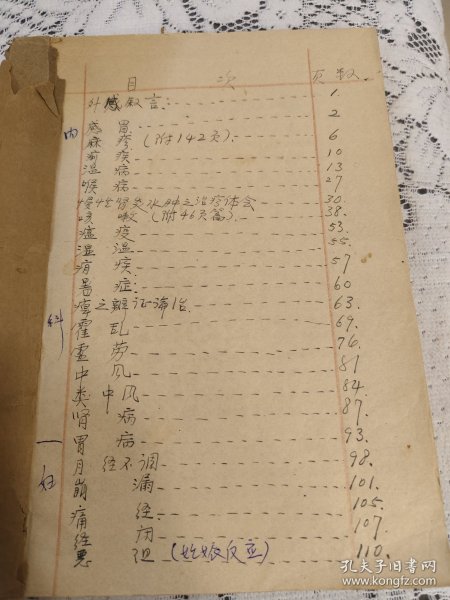 目 次 页数.
外感叙言 1.
感冒 2
内
麻疹(附142页). 6
疟疾 10
温病 13
喉病 27
慢性肾炎水肿之治疗体会 30.
咳嗽(附46页高). 38.
瘟疫 53.
湿温 55.
疳疾 57
暑症 60
痹之辩证论治. 63.
科
霍乱 69.
虚劳 76.
中风 81
类中风 84.
肾病 87.
胃病 93.
月经不调 98.
一
崩漏 101.
妇
痛经 105.
经闭 107
恶阻(妊娠反应) 110.
孔夫子旧书网